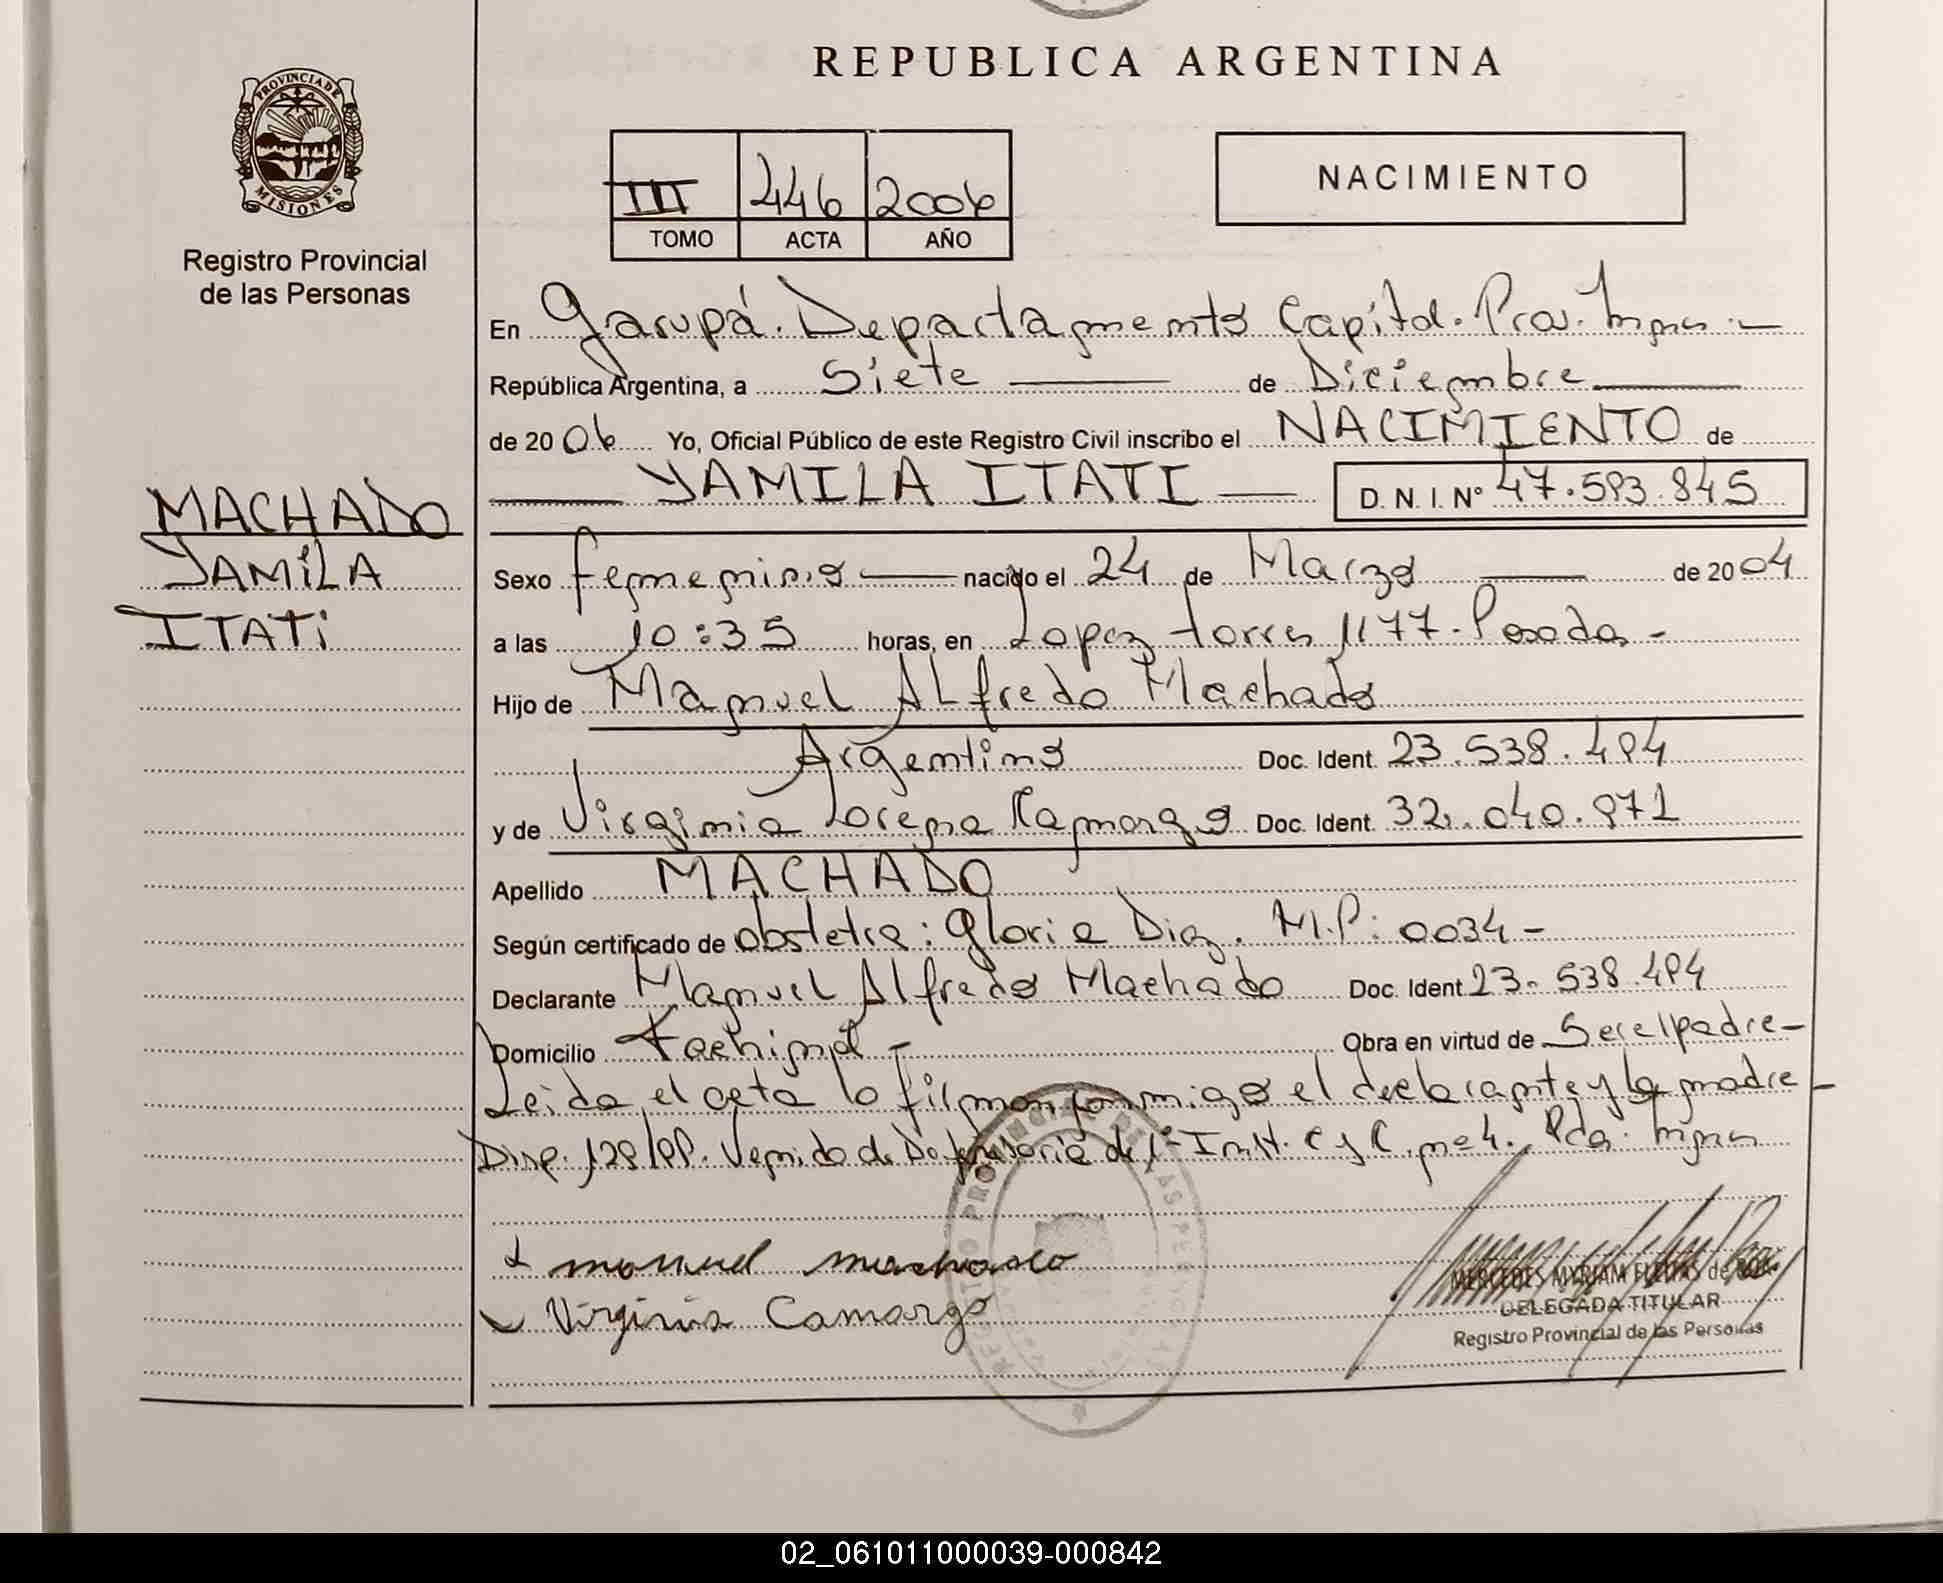 REPUBLICA ARGENTINA
PROVINCIA DE MISIONES
III 446 2006
TOMO ACTA AÑO
NACIMIENTO
Registro Provincial
de las Personas
En Garupá. Departamento Capital. Prov. Mnes
República Argentina, a Siete de Diciembre
de 2006 Yo, Oficial Público de este Registro Civil inscribo el NACIMIENTO de
YAMILA ITATI D.N.I. Nº 47.593.845
MACHADO
YAMILA
ITATI
Sexo femenino nacido el 24 de Marzo de 2004
a las 10:35 horas, en Lopez torres 1177. Posadas -
Hijo de Manuel ALfredo Machado
Argentino Doc. Ident. 23.538.494
y de Virginia Lorena Kamargo Doc. Ident. 32.040.971
Apellido MACHADO
Según certificado de obstetra: Gloria Diaz. M.P: 0034 -
Declarante Manuel Alfredo Machado Doc. Ident 23.538.494
Domicilio Fachinal - Obra en virtud de Ser el padre -
Leida el acta la firman conmigo el declarante y la madre -
Disp. 129/99. Venido de Defensoria de 1ª Inst. C y C. nº 4. Pdas. Mnes
manuel machado
Virginia Camargo
MERCEDES MYRIAM FLEITAS de
DELEGADA TITULAR
Registro Provincial de las Personas
02_061011000039-000842